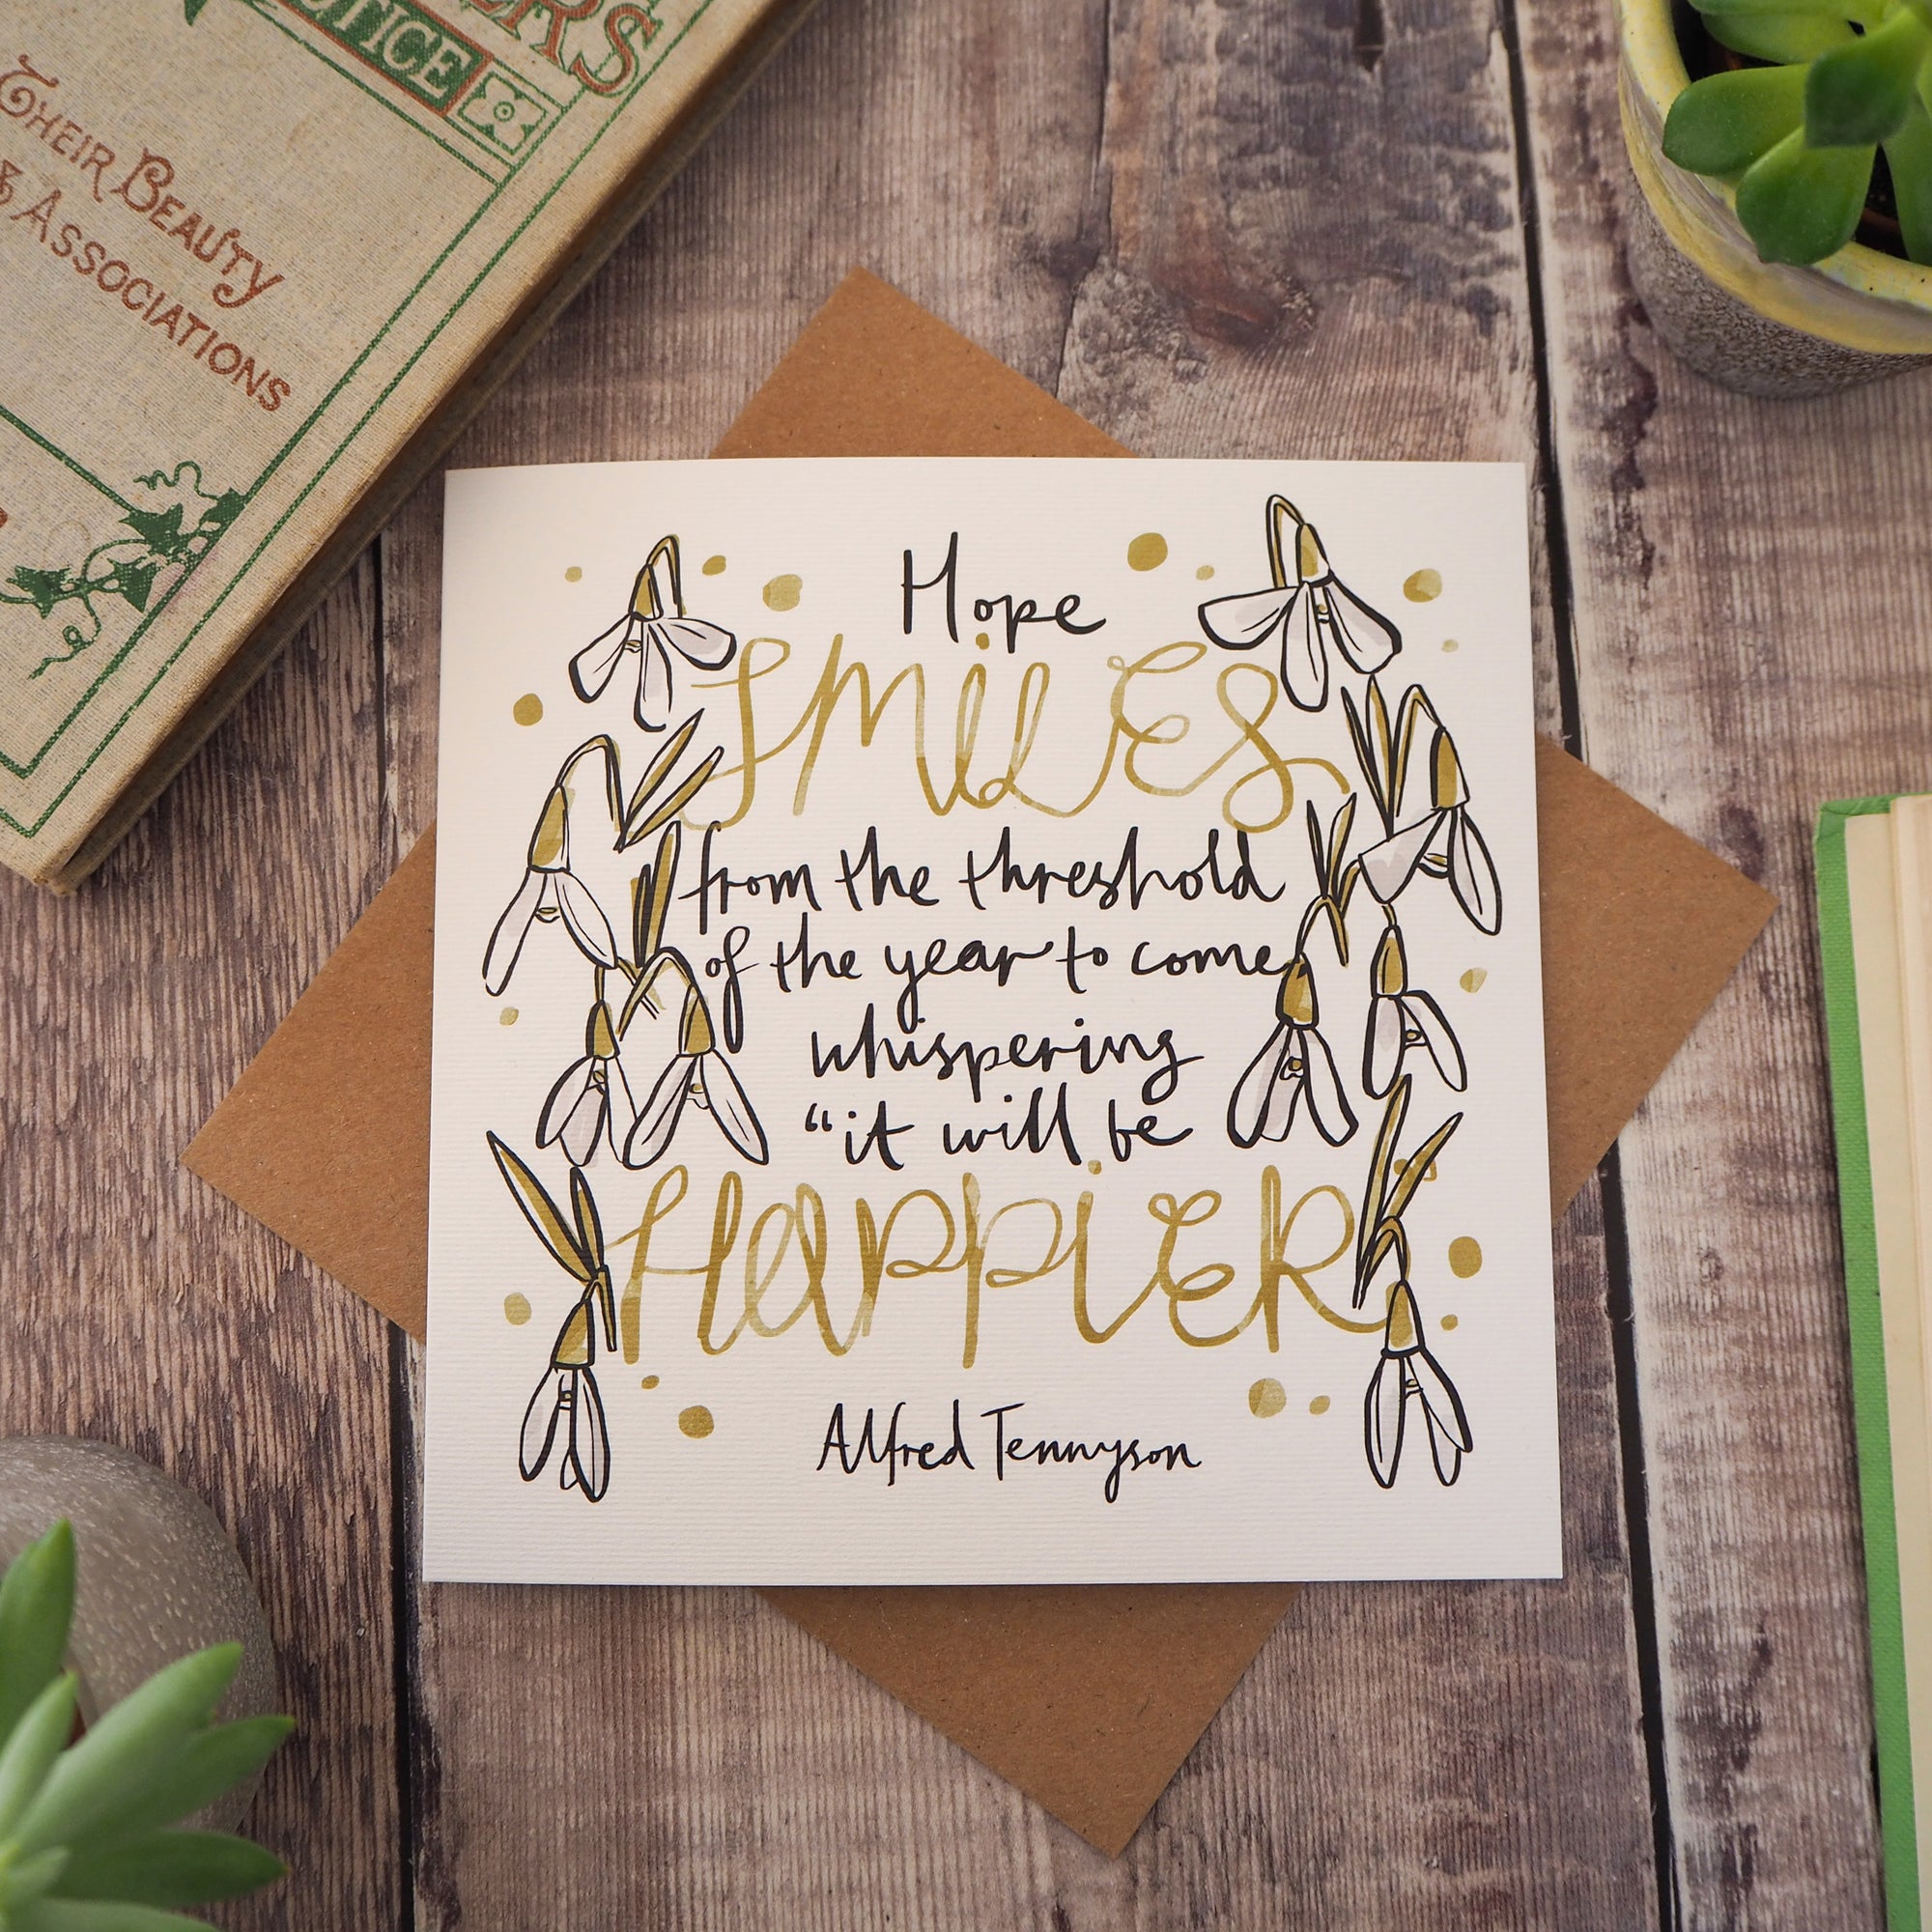 OTICE
THEIR BEAUTY
& ASSOCIATIONS
Hope
SMiLES
from the threshold
of the year to come
whispering
“it will be
HAPPiER”
Alfred Tennyson